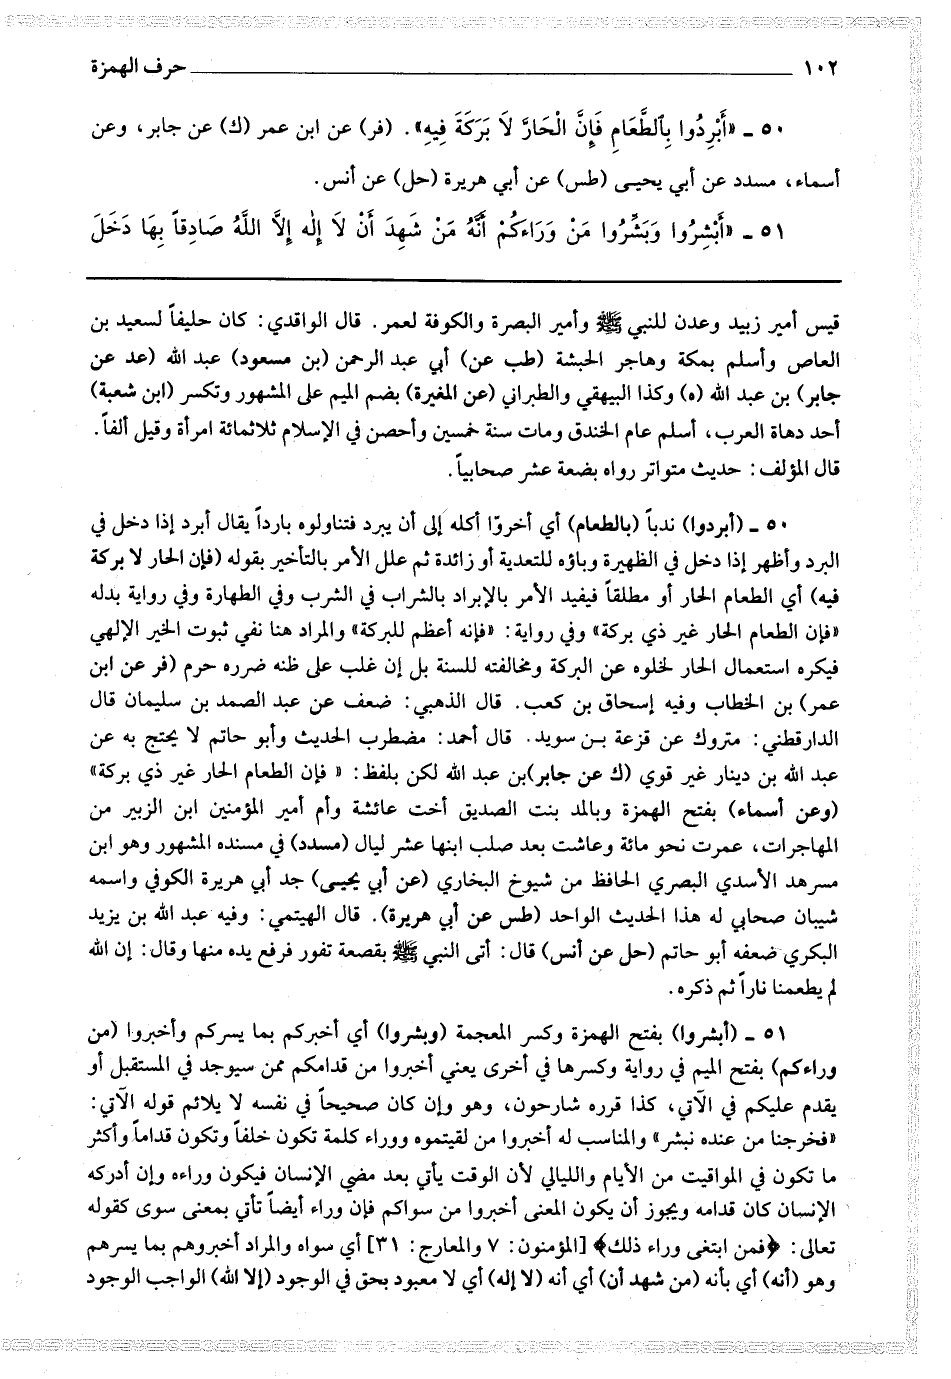 ١٠٢ حرف الهمزة
٥٠ ـ «أَبْرِدُوا بِٱلطَّعَامِ فَإِنَّ الْحَارَّ لَا بَرَكَةَ فِيهِ». (فر) عن ابن عمر (ك) عن جابر، وعن
أسماء، مسدد عن أبي يحيى (طس) عن أبي هريرة (حل) عن أنس.
٥١ ـ «أَبْشِرُوا وَبَشِّرُوا مَنْ وَرَاءَكُمْ أَنَّهُ مَنْ شَهِدَ أَنْ لَا إِلٰه إِلَّا اللَّهُ صَادِقاً بِهَا دَخَلَ
قيس أمير زبيد وعدن للنبي ﷺ وأمير البصرة والكوفة لعمر. قال الواقدي: كان حليفاً لسعيد بن
العاص وأسلم بمكة وهاجر الحبشة (طب عن) أبي عبد الرحمن (بن مسعود) عبد الله (عد عن
جابر) بن عبد الله (ه) وكذا البيهقي والطبراني (عن المغيرة) بضم الميم على المشهور وتكسر (ابن شعبة)
أحد دهاة العرب، أسلم عام الخندق ومات سنة خمسين وأحصن في الإسلام ثلاثمائة امرأة وقيل ألفاً.
قال المؤلف: حديث متواتر رواه بضعة عشر صحابياً.
٥٠ ـ (أبردوا) ندباً (بالطعام) أي أخروّا أكله إلى أن يبرد فتناولوه بارداً يقال أبرد إذا دخل في
البرد وأظهر إذا دخل في الظهيرة وباؤه للتعدية أو زائدة ثم علل الأمر بالتأخير بقوله (فإن الحار لا بركة
فيه) أي الطعام الحار أو مطلقاً فيفيد الأمر بالإبراد بالشراب في الشرب وفي الطهارة وفي رواية بدله
«فإن الطعام الحار غير ذي بركة» وفي رواية: «فإنه أعظم للبركة» والمراد هنا نفي ثبوت الخير الإلهي
فيكره استعمال الحار لخلوه عن البركة ومخالفته للسنة بل إن غلب على ظنه ضرره حرم (فر عن ابن
عمر) بن الخطاب وفيه إسحاق بن كعب. قال الذهبي: ضعف عن عبد الصمد بن سليمان قال
الدارقطني: متروك عن قزعة بن سويد. قال أحمد: مضطرب الحديث وأبو حاتم لا يحتج به عن
عبد الله بن دينار غير قوي (ك عن جابر)بن عبد الله لكن بلفظ: « فإن الطعام الحار غير ذي بركة»
(وعن أسماء) بفتح الهمزة وبالمد بنت الصديق أخت عائشة وأم أمير المؤمنين ابن الزبير من
المهاجرات، عمرت نحو مائة وعاشت بعد صلب ابنها عشر ليال (مسدد) في مسنده المشهور وهو ابن
مسرهد الأسدي البصري الحافظ من شيوخ البخاري (عن أبي يحيى) جد أبي هريرة الكوفي واسمه
شيبان صحابي له هذا الحديث الواحد (طس عن أبي هريرة). قال الهيتمي: وفيه عبد الله بن يزيد
البكري ضعفه أبو حاتم (حل عن أنس) قال: أتى النبي ﷺ بقصعة تفور فرفع يده منها وقال: إن الله
لم يطعمنا ناراً ثم ذكره.
٥١ ـ (أبشروا) بفتح الهمزة وكسر المعجمة (وبشروا) أي أخبركم بما يسركم وأخبروا (من
وراءكم) بفتح الميم في رواية وكسرها في أخرى يعني أخبروا من قدامكم ممن سيوجد في المستقبل أو
يقدم عليكم في الآتي، كذا قرره شارحون، وهو وإن كان صحيحاً في نفسه لا يلائم قوله الآتي:
«فخرجنا من عنده نبشر» والمناسب له أخبروا من لقيتموه ووراء كلمة تكون خلفاً وتكون قداماً وأكثر
ما تكون في المواقيت من الأيام والليالي لأن الوقت يأتي بعد مضي الإنسان فيكون وراءه وإن أدركه
الإنسان كان قدامه ويجوز أن يكون المعنى أخبروا من سواكم فإن وراء أيضاً تأتي بمعنى سوى كقوله
تعالى: ﴿فمن ابتغى وراء ذلك﴾ [المؤمنون: ٧ والمعارج: ٣١] أي سواه والمراد أخبروهم بما يسرهم
وهو (أنه) أي بأنه (من شهد أن) أي أنه (لا إله) أي لا معبود بحق في الوجود (إلا الله) الواجب الوجود